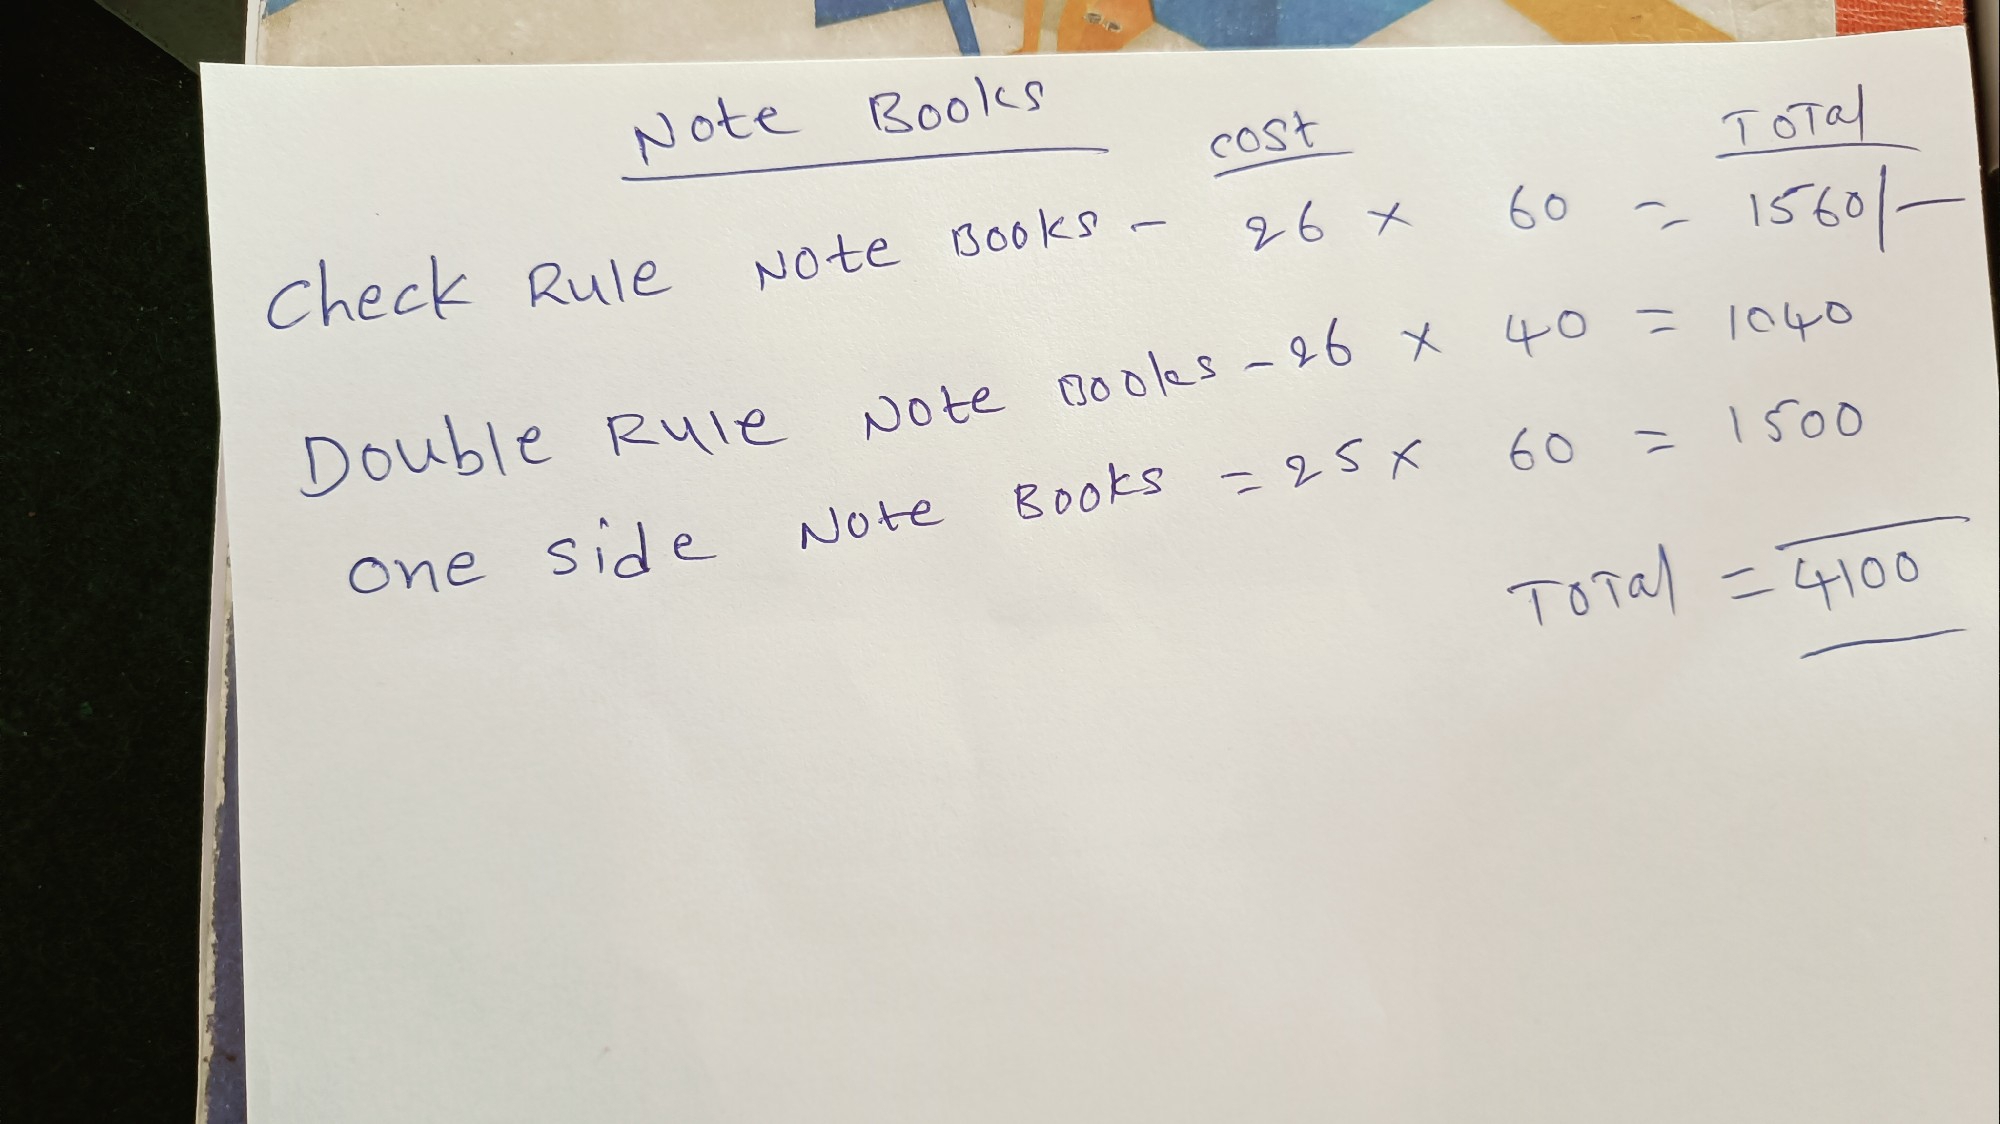 Note Books cost Total
Check Rule Note Books - 26 x 60 = 1560/-
Double Rule Note Books - 26 x 40 = 1040
one side Note Books = 25 x 60 = 1500
Total = 4100